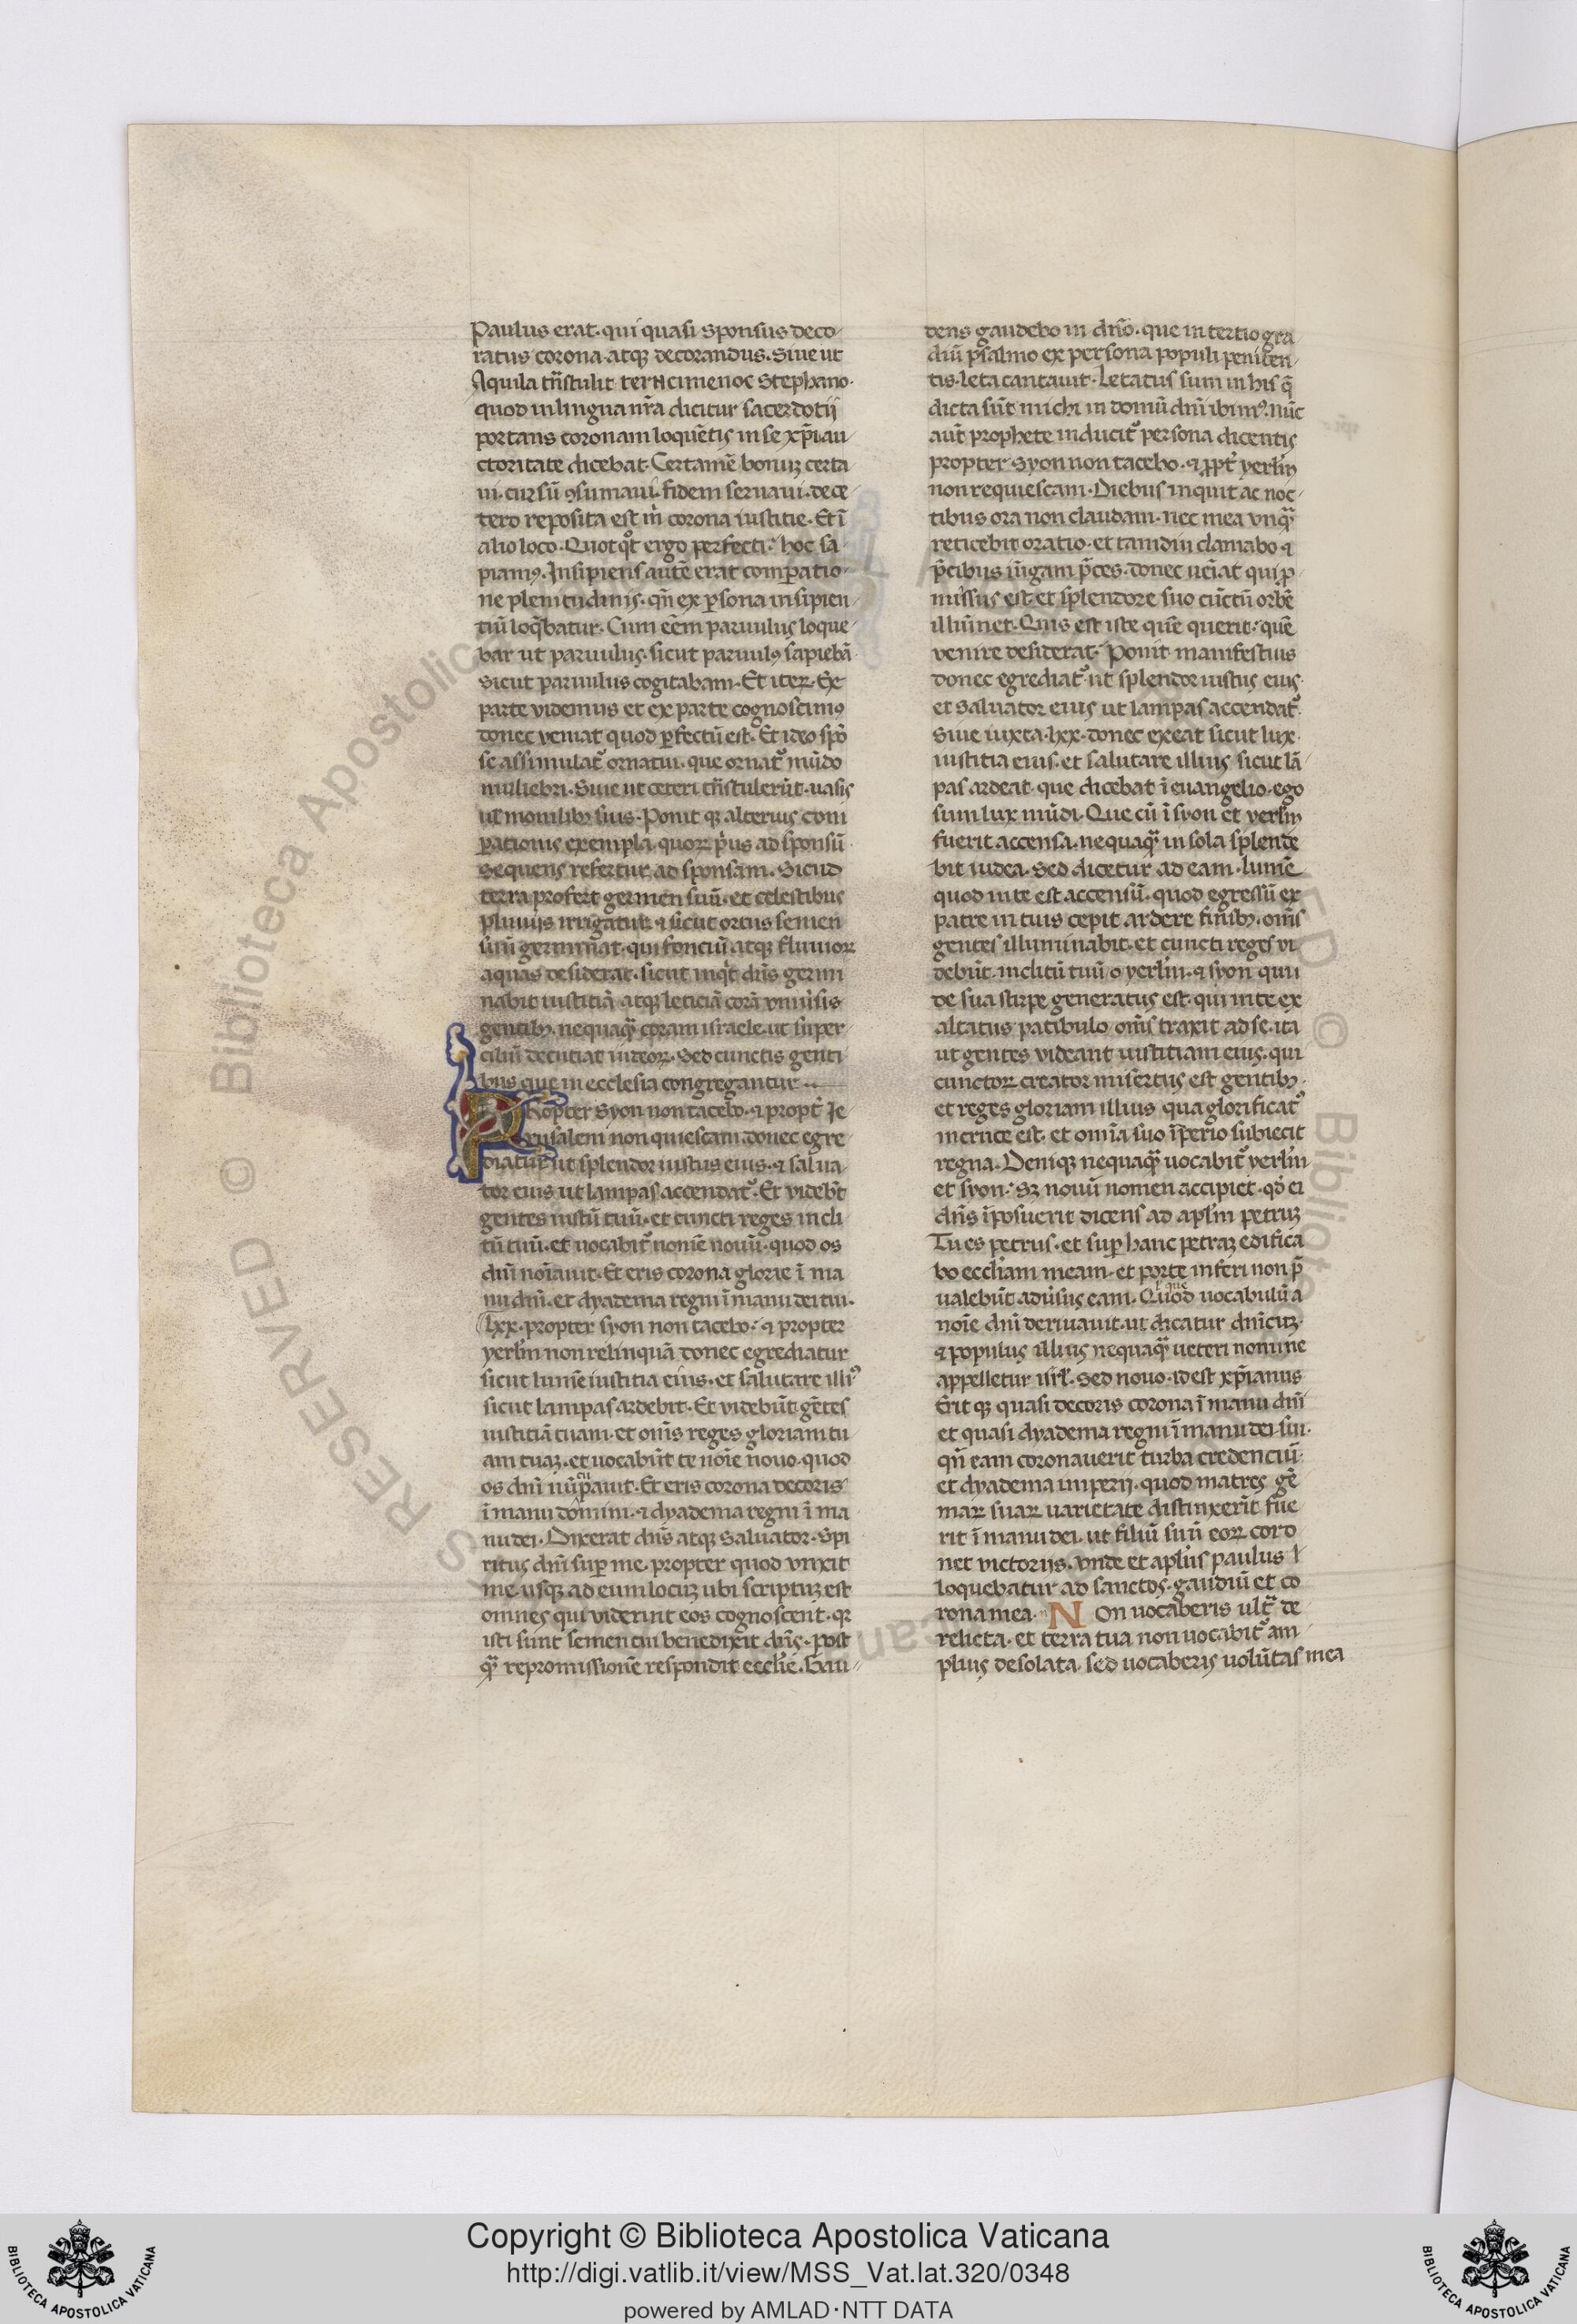 Paulus erat. qui quasi sponsus deco
ratus corona. atqꝫ decorandus. Siue ut
Aquila tñstulit terNcimenoc Stephano.
quod in lingua nr̃a dicitur sacerdotij
portans coronam loquẽtis in se xp̃i au
ctoritate dicebat. Certamẽ bonuꝫ certa
ui. cursũ ꝯsumaui. fidem seruaui. de ce
tero reposita est m̃ corona iustitie. Et ĩ
alio loco. Quotq̃t ergo perfecti: hoc sa
piamꝰ. Insipiens autẽ erat comꝑatio
ne plenitudinis. qñ ex ꝑsona insipien
tiũ loq̃batur. Cum eẽm paruulus loque
bar ut paruulus. sicut paruulꝰ sapiebã
Sicut paruulus cogitabam. Et iteꝝ. Ex
parte videmus et ex parte cognoscimꝰ
donec veniat quod ꝑfectũ est. Et ideo spõ
se assimilat᷑ ornatui. que ornat᷑ mũdo
muliebri. Siue ut ceteri tñstulerũt. uasis
ul̃ monilibꝫ suis. Ponit qꝫ alterius com
ꝑationis exempla. quoꝝ p̃us ad sponsũ
sequens refertur ad sponsam. Sicud
terra profert germen suũ. et celestibus
pluuijs irrigatur. ⁊ sicut ortus semen
suũ germinat. qui fonciũ atqꝫ fluuioꝝ
aquas desiderat. sicut inq̃t dñs germi
nabit iustitiã atqꝫ leticiã corã vniũsis
gentibꝫ. nequaq̃ coram israele. ut super
ciliũ decutiat iudeoꝝ. Sed cunctis genti
bus que in ecclesia congregantur
PRopter Syon non tacebo. ⁊ propt̃ Je
rusalem non quiescam donec egre
diatur ut splendor iustus eius. ⁊ salua
tor eius ut lampas accendat᷑. Et videbũt
gentes iustũ tuũ. et cuncti reges incli
tũ tuũ. et uocabit᷑ nomẽ nouũ. quod os
dñi noĩauit. Et eris corona glorie ĩ ma
nu dñi. et dyadema regni ĩ manu dei tui.
lxx. propter syon non tacebo: ⁊ propter
yerl̃m non relinquã donec egrediatur
sicut lumẽ iustitia eius. et salutare illiꝰ
sicut lampas ardebit. Et videbũt gẽtes
iustitiã tuam. et oms̃ reges gloriam tu
am tuaꝫ. et uocabũt te noĩe nouo. quod
os dñi nũcupauit. Et eris corona decoris
ĩ manu domini. ⁊ dyadema regni ĩ ma
nu dei. Dixerat dñs atqꝫ Saluator. Spi
ritus dñi suꝑ me. propter quod vnxit
me. usqꝫ ad eum locuꝫ ubi scriptuꝫ est
omnes qui viderint eos cognoscent. qꝛ
isti sunt semen cui benedixit dñs. post
q̃ repromissionẽ respondit eccl̃ie. Gau
dens gaudebo in dño. que in tertio gra
diũ psalmo ex persona populi peniten
tis. leta cantauit. Letatus sum in his q̃
dicta sũt michi in domũ dñi ibimꝰ. Nũc
aut̃ prophete inducit᷑ persona dicentis
propter Syon non tacebo. ⁊ ꝓpt̃ yerl̃m
non requiescam. Diebus inquit ac noc
tibus ora non claudam. nec mea vnq̃
reticebit oratio. et tamdiu clamabo ⁊
p̃cibus iũgam p̃ces. donec ueĩat qui ꝓ
missus est. et splendore suo cũctũ orbẽ
illũinet. Quis est iste quẽ querit: quẽ
venire desiderat. Ponit manifestius
donec egrediat᷑ ut splendor iustus eius.
et Saluator eius ut lampas accendat᷑.
Siue iuxta. lxx. donec exeat sicut lux.
iustitia eius. et salutare illius sicut lã
pas ardeat. que dicebat ĩ euangelio. ego
sum lux mũdi. Que cũ ĩ syon et yerl̃m
fuerit accensa. nequaq̃ in sola splende
bit iudea. Sed dicetur ad eam. lumẽ
quod in te est accensũ. quod egressũ ex
patre in tuis cepit ardere finibꝫ. oms̃
gentes illuminabit. et cuncti reges vi
debũt. inclitũ tuũ o yerl̃m. ⁊ syon qui
de sua stirpe generatus est. qui in te ex
altatus patibulo oms̃ traxit ad se. ita
ut gentes videant iustitiam eius. qui
cunctoꝝ creator misertus est gentibꝫ.
et reges gloriam illius qua glorificat᷑
in cruce est. et omĩa suo ĩperio subiecit
regna. Deniqꝫ nequaq̃ uocabit᷑ yerl̃m
et syon: Sꝫ nouũ nomen accipiet. qđ ei
dñs ĩposuerit dicens ad apl̃m petruꝫ
Tu es petrus. et suꝑ hanc petraꝫ edifica
bo eccl̃iam meam. et porte inferi non p̃
ualebũt aduũsus eam. Quod uocabulũ a
noĩe dñi deriuauit. ut dicatur dñicuꝫ.
⁊ populus illius nequaq̃ ueteri nomine
appelletur isrl̃. Sed nouo. idest xp̃ianus
Erit qꝫ quasi decoris corona ĩ manu dñi
et quasi dyadema regni ĩ manu dei sui.
qñ eam coronauerit turba credenciũ.
et dyadema imperij. quod matres gẽ
maꝝ suaꝝ uarietate distinxerĩt fue
rit ĩ manu dei. ut filiũ suũ eoꝝ coro
net victorijs. vnde et apl̃us paulus
loquebatur ad sanctos. gaudiũ et co
rona mea. NOn uocaberis ult̃ de
relicta. et terra tua non uocabit᷑ am
plius desolata. sed uocaberis uolũtas mea
Copyright © Biblioteca Apostolica Vaticana
http://digi.vatlib.it/view/MSS_Vat.lat.320/0348
powered by AMLAD·NTT DATA